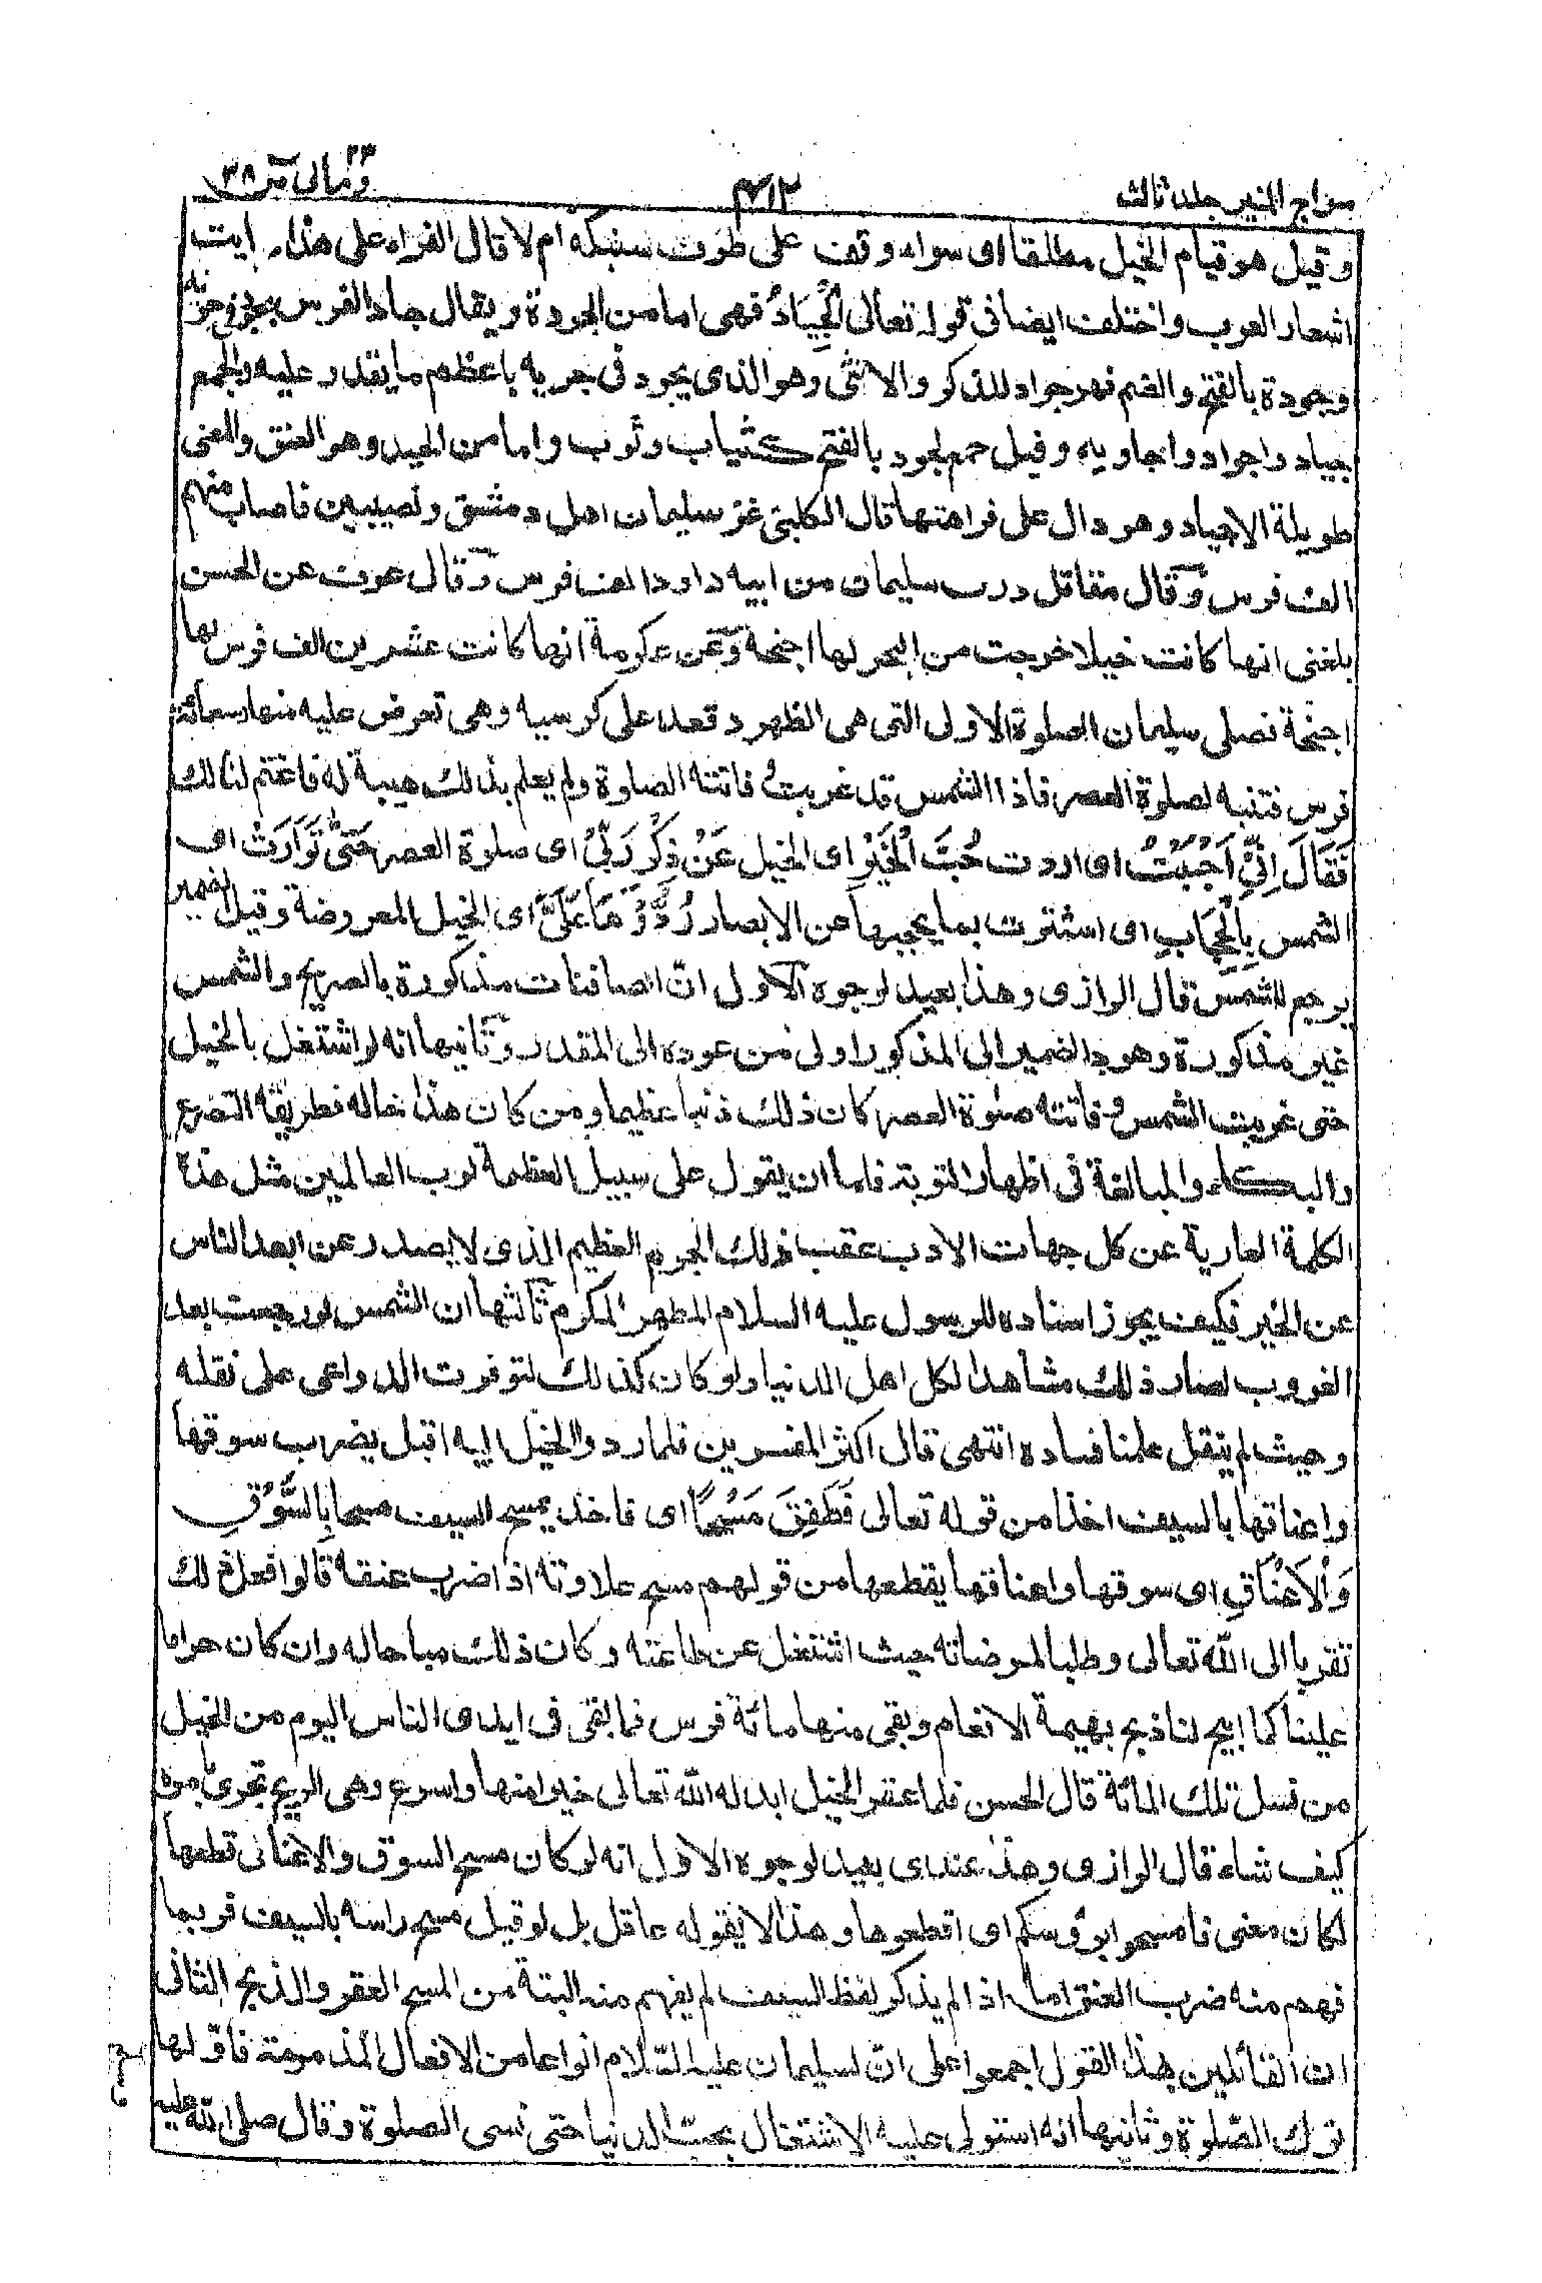 سراج المنير جلد ثالث ٤١٢ ومالى ٢٣ ص ٣٨
وقيل هو قيام الخيل مطلقا اى سواء وقف على طرف سنبكه ام لا قال الفراء على هذا رايت
اشعار العرب واختلف ايضا فى قوله تعالى الْجِيَادُ فهى اما من الجودة ويقال جاد الفرس يجود فى جريه
وجودة بالفتح والضم فهو جواد للذكر والانثى وهو الذى يجود فى جريه باعظم ما يقدر عليه والجمع
جياد واجواد واجاويد وقيل جمع لجود بالفتح كثياب وثوب واما من الجيد وهو العنق والمعنى
طويلة الاجياد وهو دال على فراهتها قال الكلبى غز سليمان اهل دمشق ونصيبين فاصاب منهم
الف فرس وقال مقاتل ورث سليمان من ابيه داود الف فرس وقال عوف عن الحسن
بلغنى انها كانت خيلا خرجت من البحر لها اجنحة وعن عكرمة انها كانت عشرين الف فرس لها
اجنحة فصلى سليمان الصلوة الاولى التى هى الظهر وقعد على كرسيه وهى تعرض عليه منها تسعمائة
فرس فتنبه لصلوة العصر فاذا الشمس قد غربت وفاتته الصلوة ولم يعلم بذلك هيبة له فاغتم لذلك
فَقَالَ اِنِّىْ اَحْبَبْتُ اى اردت حُبَّ الْخَيْرِ اى الخيل عَنْ ذِكْرِ رَبِّىْ اى صلوة العصر حَتّٰى تَوَارَتْ اى
الشمس بِالْحِجَابِ اى استترت بما يحجبها عن الابصار رُدُّوْهَا عَلَىَّ اى الخيل المعروضة وقيل الضمير
يرجع للشمس قال الرازى وهذا بعيد لوجوه الاول ان الصافنات مذكورة بالصريح والشمس
غير مذكورة وعود الضمير الى المذكور اولى من عوده الى المقدر وثانيها انه لو اشتغل بالخيل
حتى غربت الشمس وفاتته صلوة العصر كان ذلك ذنبا عظيما ومن كان هذا حاله فطريقه التضرع
والبكاء والمبالغة فى اظهار التوبة فاما ان يقول على سبيل العظمة لرب العالمين مثل هذه
الكلمة العارية عن كل جهات الادب عقب ذلك الجرم العظيم الذى لا يصدر عن ابعد الناس
عن الخير فكيف يجوز اسناده للرسول عليه السلام المطهر المكرم ثالثها ان الشمس لو رجعت بعد
الغروب لصار ذلك مشاهدا لكل اهل الدنيا ولو كان كذلك لتوفرت الدواعى على نقله
وحيث لم ينقل علمنا فساده انتهى قال اكثر المفسرين فلما ردوا الخيل اليه اقبل يضرب سوقها
واعناقها بالسيف اخذا من قوله تعالى فَطَفِقَ مَسْحًا اى فاخذ يمسح السيف مسحا بِالسُّوْقِ
وَالْاَعْنَاقِ اى سوقها واعناقها يقطعها من قولهم مسح علاوته اذا ضرب عنقه قالوا فعل ذلك
تقربا الى الله تعالى وطلبا لمرضاته حيث اشتغل عن طاعته وكان ذلك مباحا له وان كان حراما
علينا كما ابيح لنا ذبح بهيمة الانعام وبقى منها مائة فرس فما بقى فى ايدى الناس اليوم من الخيل
من نسل تلك المائة قال الحسن فلما عقر الخيل ابدله الله تعالى خيرا منها واسرع وهى الريح تجرى بامره
كيف شاء قال الرازى وهذا عندى بعيد لوجوه الاول انه لو كان مسح السوق والاعناق قطعها
لكان معنى فامسحوا برؤسكم اى اقطعوها وهذا لا يقوله عاقل بل لو قيل مسح راسه بالسيف فربما
فهم منه ضرب العنق اما اذا لم يذكر لفظ السيف لم يفهم منه البتة من المسح العقر والذبح الثانى
ان القائلين بهذا القول اجمعوا على ان لسليمان عليه السلام انواعا من الافعال المذمومة فاولها
ترك الصلوة وثانيها انه استولى عليه الاشتغال بحب الدنيا حتى نسى الصلوة وقال صلى الله عليه